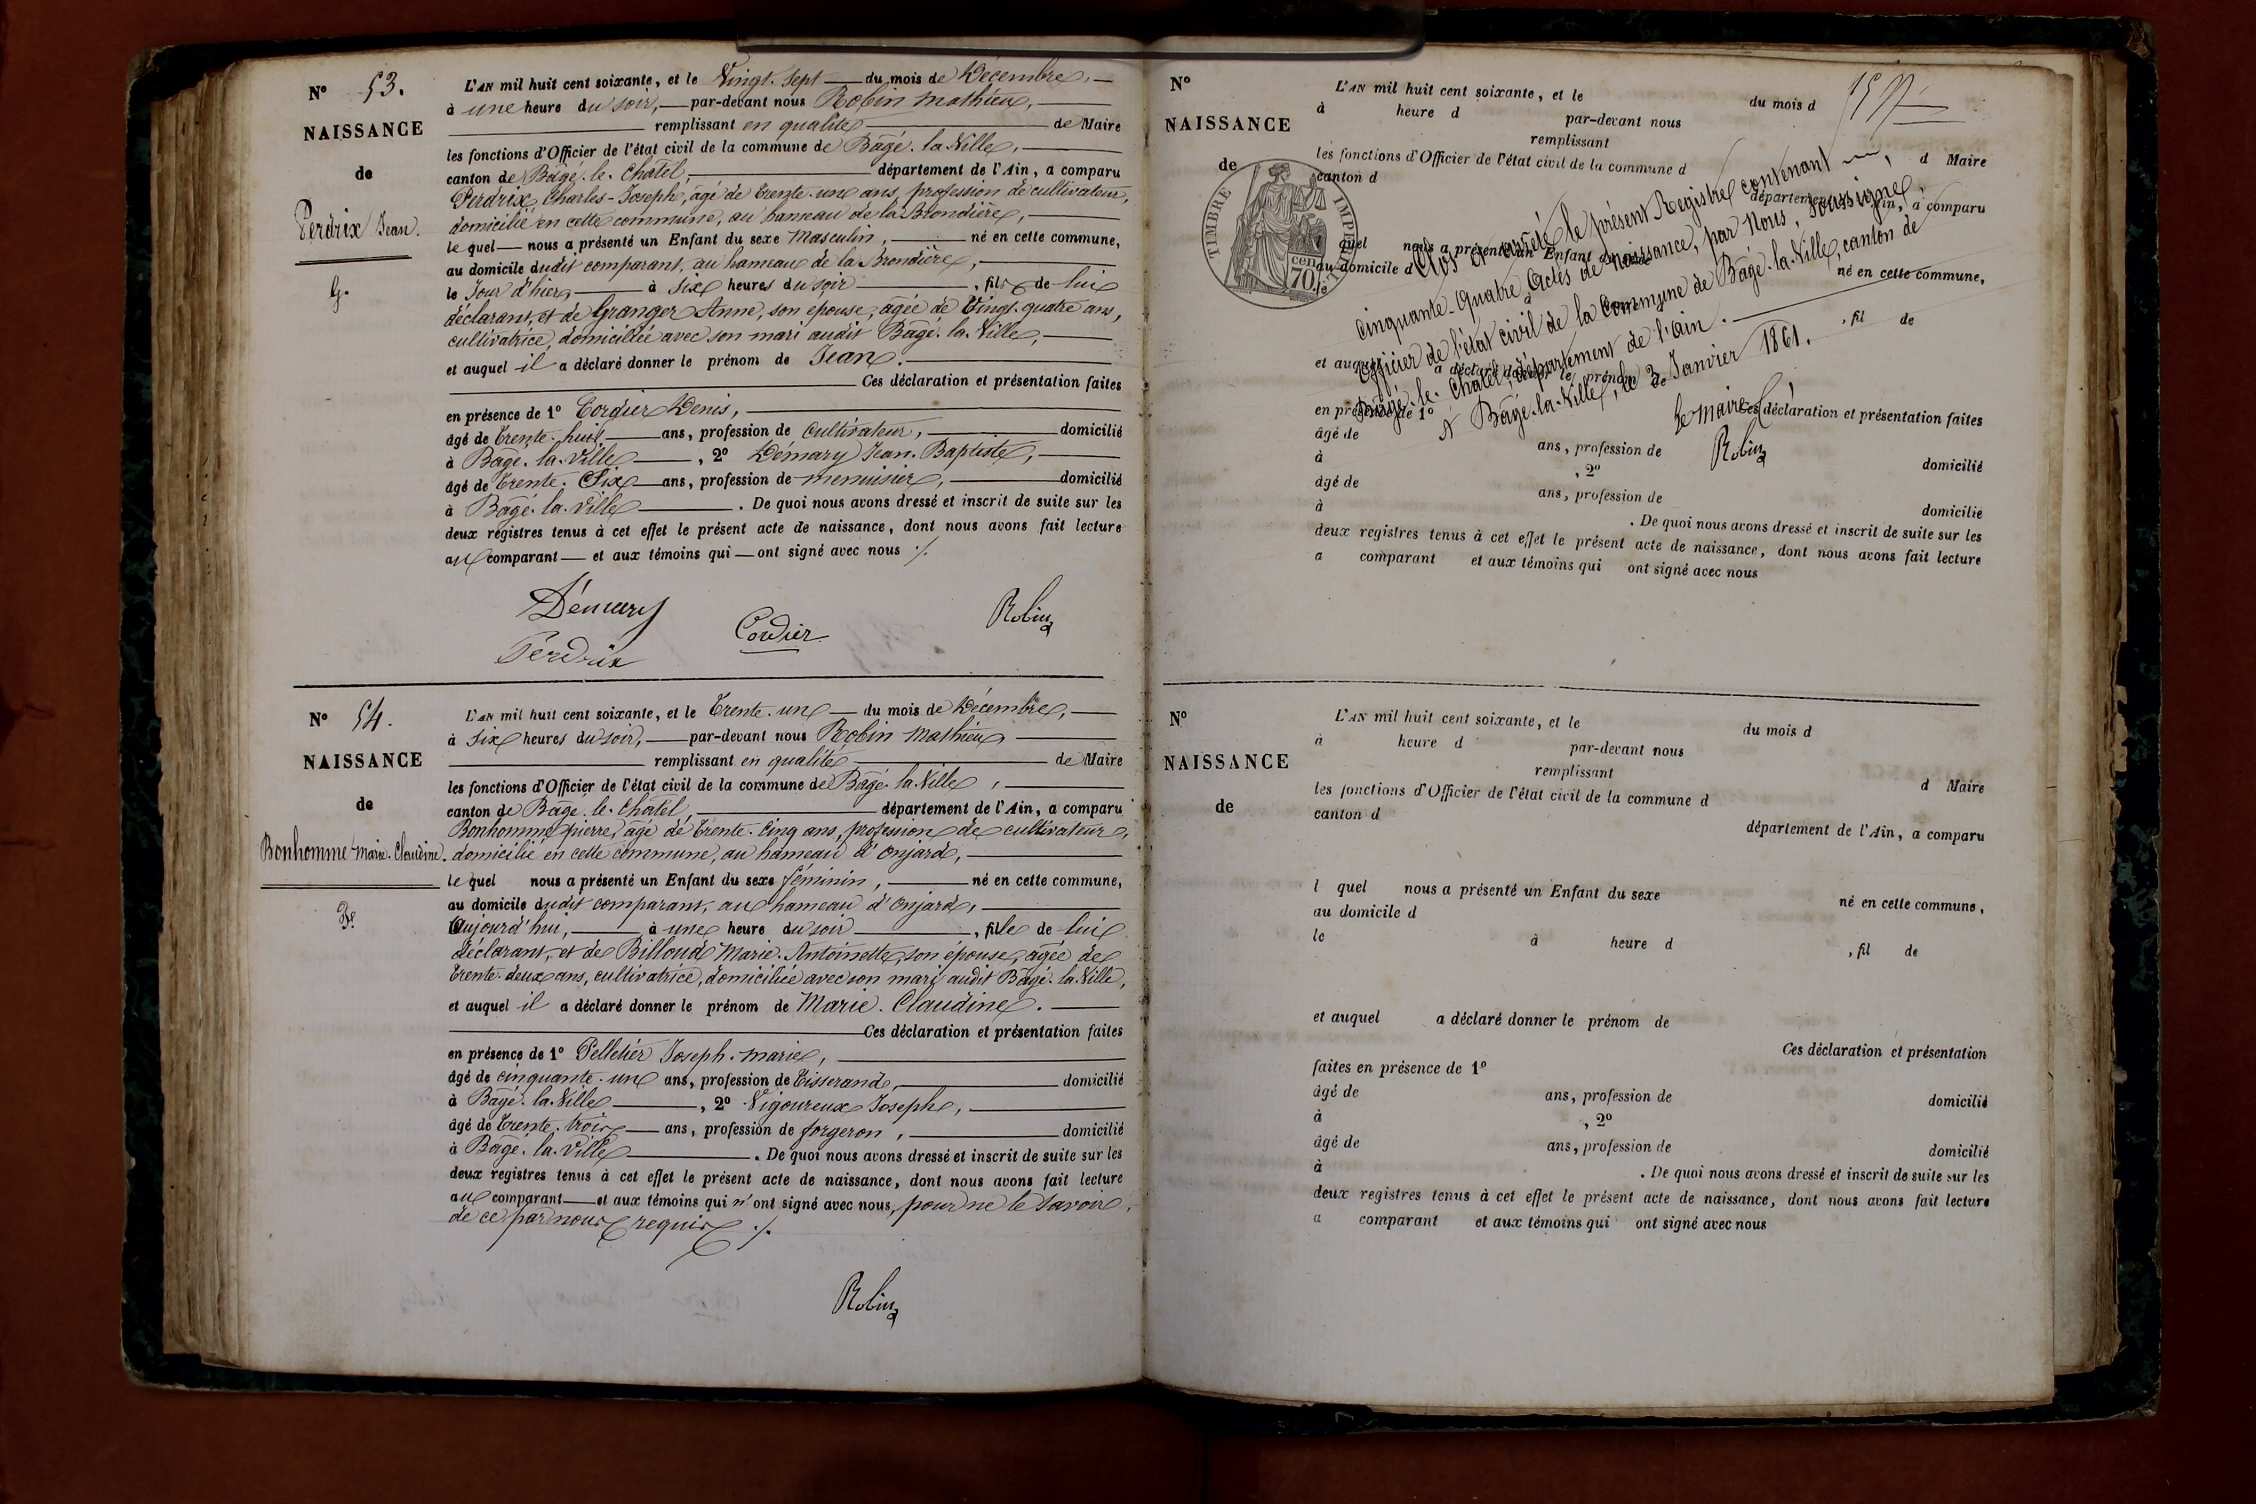 N° 53.
NAISSANCE
de
Perdrix Jean.
G.
L'AN mil huit cent soixante, et le Vingt-Sept du mois de Décembre,
à une heure du soir, par-devant nous Robin Mathieu,
remplissant en qualité de Maire
les fonctions d'Officier de l'état civil de la commune de Bâgé-la-Ville,
canton de Bâgé-le-Chatel, département de l'Ain, a comparu
Perdrix Charles-Joseph, âgé de trente-un ans, profession de cultivateur,
domicilié en cette commune, au hameau de la Brondière,
le quel nous a présenté un Enfant du sexe Masculin, né en cette commune,
au domicile dudit comparant, au hameau de la Brondière,
le Jour d'hier, à Six heures du soir, fils de lui
déclarant, et de Granger Anne, son épouse, âgée de Vingt-quatre ans,
cultivatrice, domiciliée avec son mari audit Bâgé-la-Ville,
et auquel il a déclaré donner le prénom de Jean.
Ces déclaration et présentation faites
en présence de 1° Cordier Denis,
âgé de trente-huit ans, profession de Cultivateur, domicilié
à Bâgé-la-Ville, 2° Démary Jean-Baptiste,
âgé de trente-Six ans, profession de menuisier, domicilié
à Bâgé-la-Ville. De quoi nous avons dressé et inscrit de suite sur les
deux registres tenus à cet effet le présent acte de naissance, dont nous avons fait lecture
au comparant et aux témoins qui ont signé avec nous ./.
Démary
Cordier
Robin
Perdrix
N° 54.
NAISSANCE
de
Bonhomme Marie-Claudine.
L'AN mil huit cent soixante, et le Trente-un du mois de Décembre,
à Six heures du soir, par-devant nous Robin Mathieu
remplissant en qualité de Maire
les fonctions d'Officier de l'état civil de la commune de Bâgé-la-Ville,
canton de Bâgé-le-Chatel, département de l'Ain, a comparu
Bonhomme Pierre, âgé de trente-cinq ans, profession de cultivateur,
domicilié en cette commune, au hameau d'Onjard,
le quel nous a présenté un Enfant du sexe féminin, né en cette commune,
au domicile dudit comparant, au hameau d'Onjard,
Aujourd'hui, à une heure du soir, fille de lui
déclarant, et de Billoud Marie-Antoinette, son épouse, âgée de
trente-deux ans, cultivatrice, domiciliée avec son mari audit Bâgé-la-Ville,
et auquel il a déclaré donner le prénom de Marie-Claudine.
Ces déclaration et présentation faites
en présence de 1° Pelletier Joseph-Marie,
âgé de cinquante-un ans, profession de Tisserand, domicilié
à Bâgé-la-Ville, 2° Vigoureux Joseph,
âgé de trente-trois ans, profession de forgeron, domicilié
à Bâgé-la-Ville. De quoi nous avons dressé et inscrit de suite sur les
deux registres tenus à cet effet le présent acte de naissance, dont nous avons fait lecture
au comparant et aux témoins qui n'ont signé avec nous, pour ne le savoir,
de ce par nous requis ./.
Robin
N°
NAISSANCE
de
TIMBRE IMPERIAL
70 cen
L'AN mil huit cent soixante, et le du mois d
à heure d par-devant nous
remplissant d Maire
les fonctions d'Officier de l'état civil de la commune d
canton d département de l'Ain, a comparu
l quel nous a présenté un Enfant du sexe né en cette commune,
au domicile d
, fil de
et auquel a déclaré donner le prénom de
Ces déclaration et présentation faites
en présence de 1°
âgé de ans, profession de domicilié
à , 2°
âgé de ans, profession de domicilié
à . De quoi nous avons dressé et inscrit de suite sur les
deux registres tenus à cet effet le présent acte de naissance, dont nous avons fait lecture
a comparant et aux témoins qui ont signé avec nous
Clos et arrêté le présent Registre contenant
Cinquante-Quatre Actes de naissance, par Nous, soussigné,
Officier de l'état civil de la Commune de Bâgé-la-Ville, canton de
Bâgé-le-Chatel, département de l'Ain.
A Bâgé-la-Ville, le 2 Janvier 1861.
Le Maire
Robin
N°
NAISSANCE
de
L'AN mil huit cent soixante, et le du mois d
à heure d par-devant nous
remplissant d Maire
les fonctions d'Officier de l'état civil de la commune d
canton d département de l'Ain, a comparu
l quel nous a présenté un Enfant du sexe né en cette commune,
au domicile d
le à heure d , fil de
et auquel a déclaré donner le prénom de
Ces déclaration et présentation
faites en présence de 1°
âgé de ans, profession de domicilié
à , 2°
âgé de ans, profession de domicilié
à . De quoi nous avons dressé et inscrit de suite sur les
deux registres tenus à cet effet le présent acte de naissance, dont nous avons fait lecture
a comparant et aux témoins qui ont signé avec nous